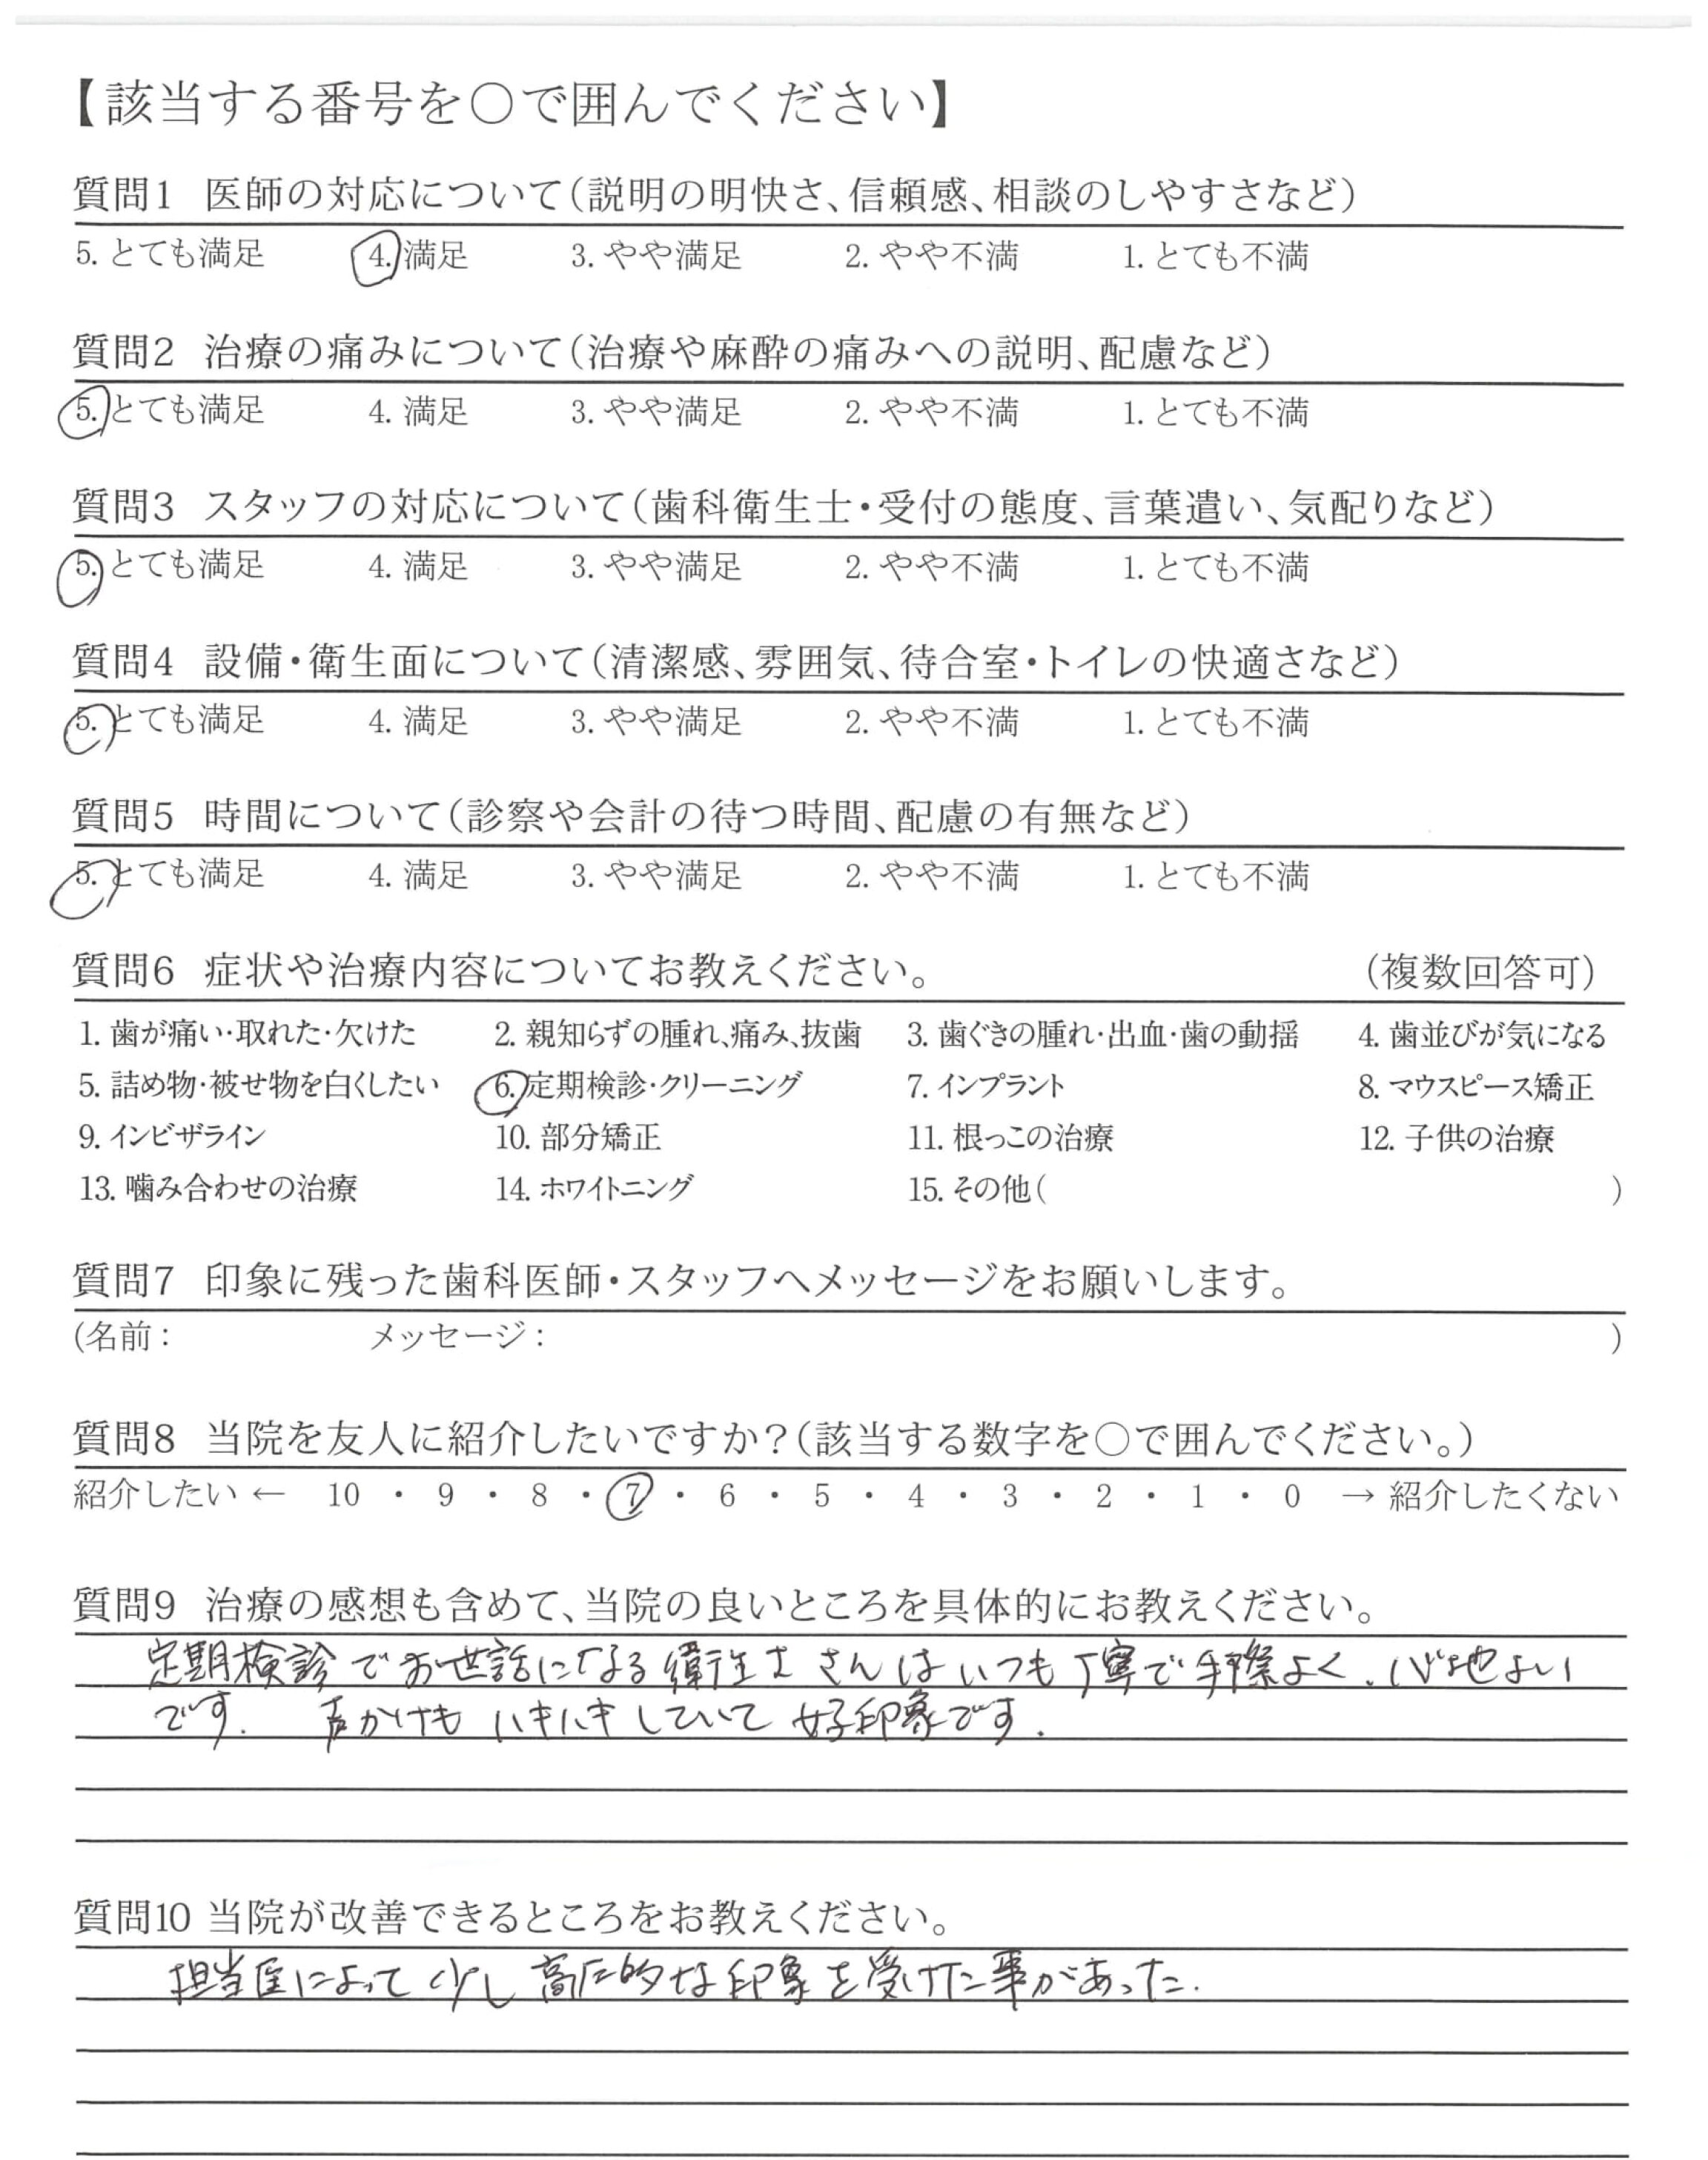 【該当する番号を〇で囲んでください】
質問1 医師の対応について(説明の明快さ、信頼感、相談のしやすさなど)
5. とても満足 4. 満足 3. やや満足 2. やや不満 1. とても不満
質問2 治療の痛みについて(治療や麻酔の痛みへの説明、配慮など)
5. とても満足 4. 満足 3. やや満足 2. やや不満 1. とても不満
質問3 スタッフの対応について(歯科衛生士・受付の態度、言葉遣い、気配りなど)
5. とても満足 4. 満足 3. やや満足 2. やや不満 1. とても不満
質問4 設備・衛生面について(清潔感、雰囲気、待合室・トイレの快適さなど)
5. とても満足 4. 満足 3. やや満足 2. やや不満 1. とても不満
質問5 時間について(診察や会計の待つ時間、配慮の有無など)
5. とても満足 4. 満足 3. やや満足 2. やや不満 1. とても不満
質問6 症状や治療内容についてお教えください。 (複数回答可)
1. 歯が痛い・取れた・欠けた 2. 親知らずの腫れ、痛み、抜歯 3. 歯ぐきの腫れ・出血・歯の動揺 4. 歯並びが気になる
5. 詰め物・被せ物を白くしたい 6. 定期検診・クリーニング 7. インプラント 8. マウスピース矯正
9. インビザライン 10. 部分矯正 11. 根っこの治療 12. 子供の治療
13. 噛み合わせの治療 14. ホワイトニング 15. その他( )
質問7 印象に残った歯科医師・スタッフへメッセージをお願いします。
(名前: メッセージ: )
質問8 当院を友人に紹介したいですか?(該当する数字を〇で囲んでください。)
紹介したい ← 10 ・ 9 ・ 8 ・ 7 ・ 6 ・ 5 ・ 4 ・ 3 ・ 2 ・ 1 ・ 0 → 紹介したくない
質問9 治療の感想も含めて、当院の良いところを具体的にお教えください。
定期検診でお世話になる衛生士さんはいつも丁寧で手際よく、心地よい
です。 声かけもハキハキしていて好印象です。
質問10 当院が改善できるところをお教えください。
担当医によって少し高圧的な印象を受けた事があった.